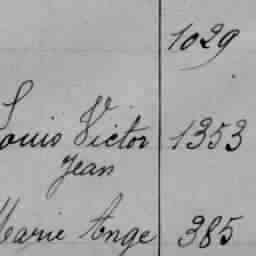 1029
Louis Victor 1353
Jean
Marie Ange 385